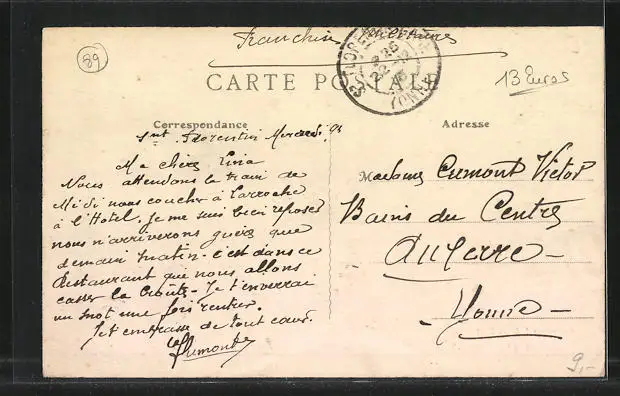 89
Franchise Militaire
CARTE POSTALE
13 Euros
Correspondance
Adresse
St Florentin Mercredi
Ma chère Lina
Nous attendons le train de
Midi nous coucher à Laroche
à l'Hotel. Je me suis bien reposer
nous n'arriverons guère que
demain matin. C'est dans ce
Restaurant que nous allons
casser la Croûte. Je t'enverrai
un mot une fois rentrer.
Je t'embrasse de tout cœur.
Cumont
Madame Cumont Victor
Bains du Centre
Auxerre
Yonne
9,-